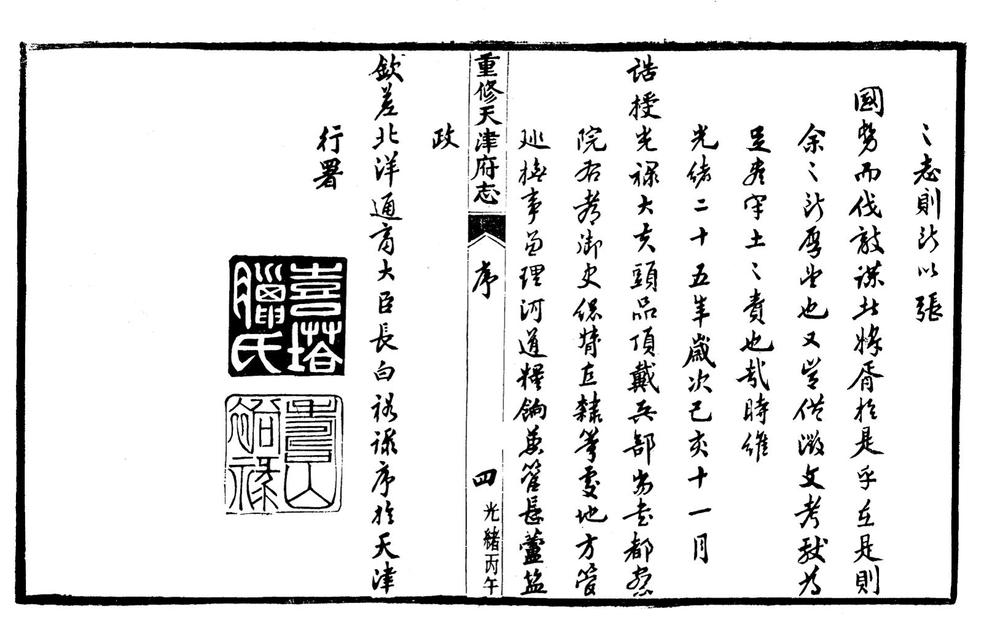 之志則所以張
國勢而伐敵謀者將胥於是乎在是則
余之所厚望也又豈僅徵文考獻為
足盡守土之責也哉時維
光緒二十五年歲次己亥十一月
誥授光祿大夫頭品頂戴兵部尚書都察
院右都御史總督直隸等處地方管
巡撫事兼理河道糧餉兼管長蘆鹽
政
重修天津府志
序
四
光緒丙午
欽差北洋通商大臣長白裕祿序於天津
行署
喜塔臘氏
壽山裕祿